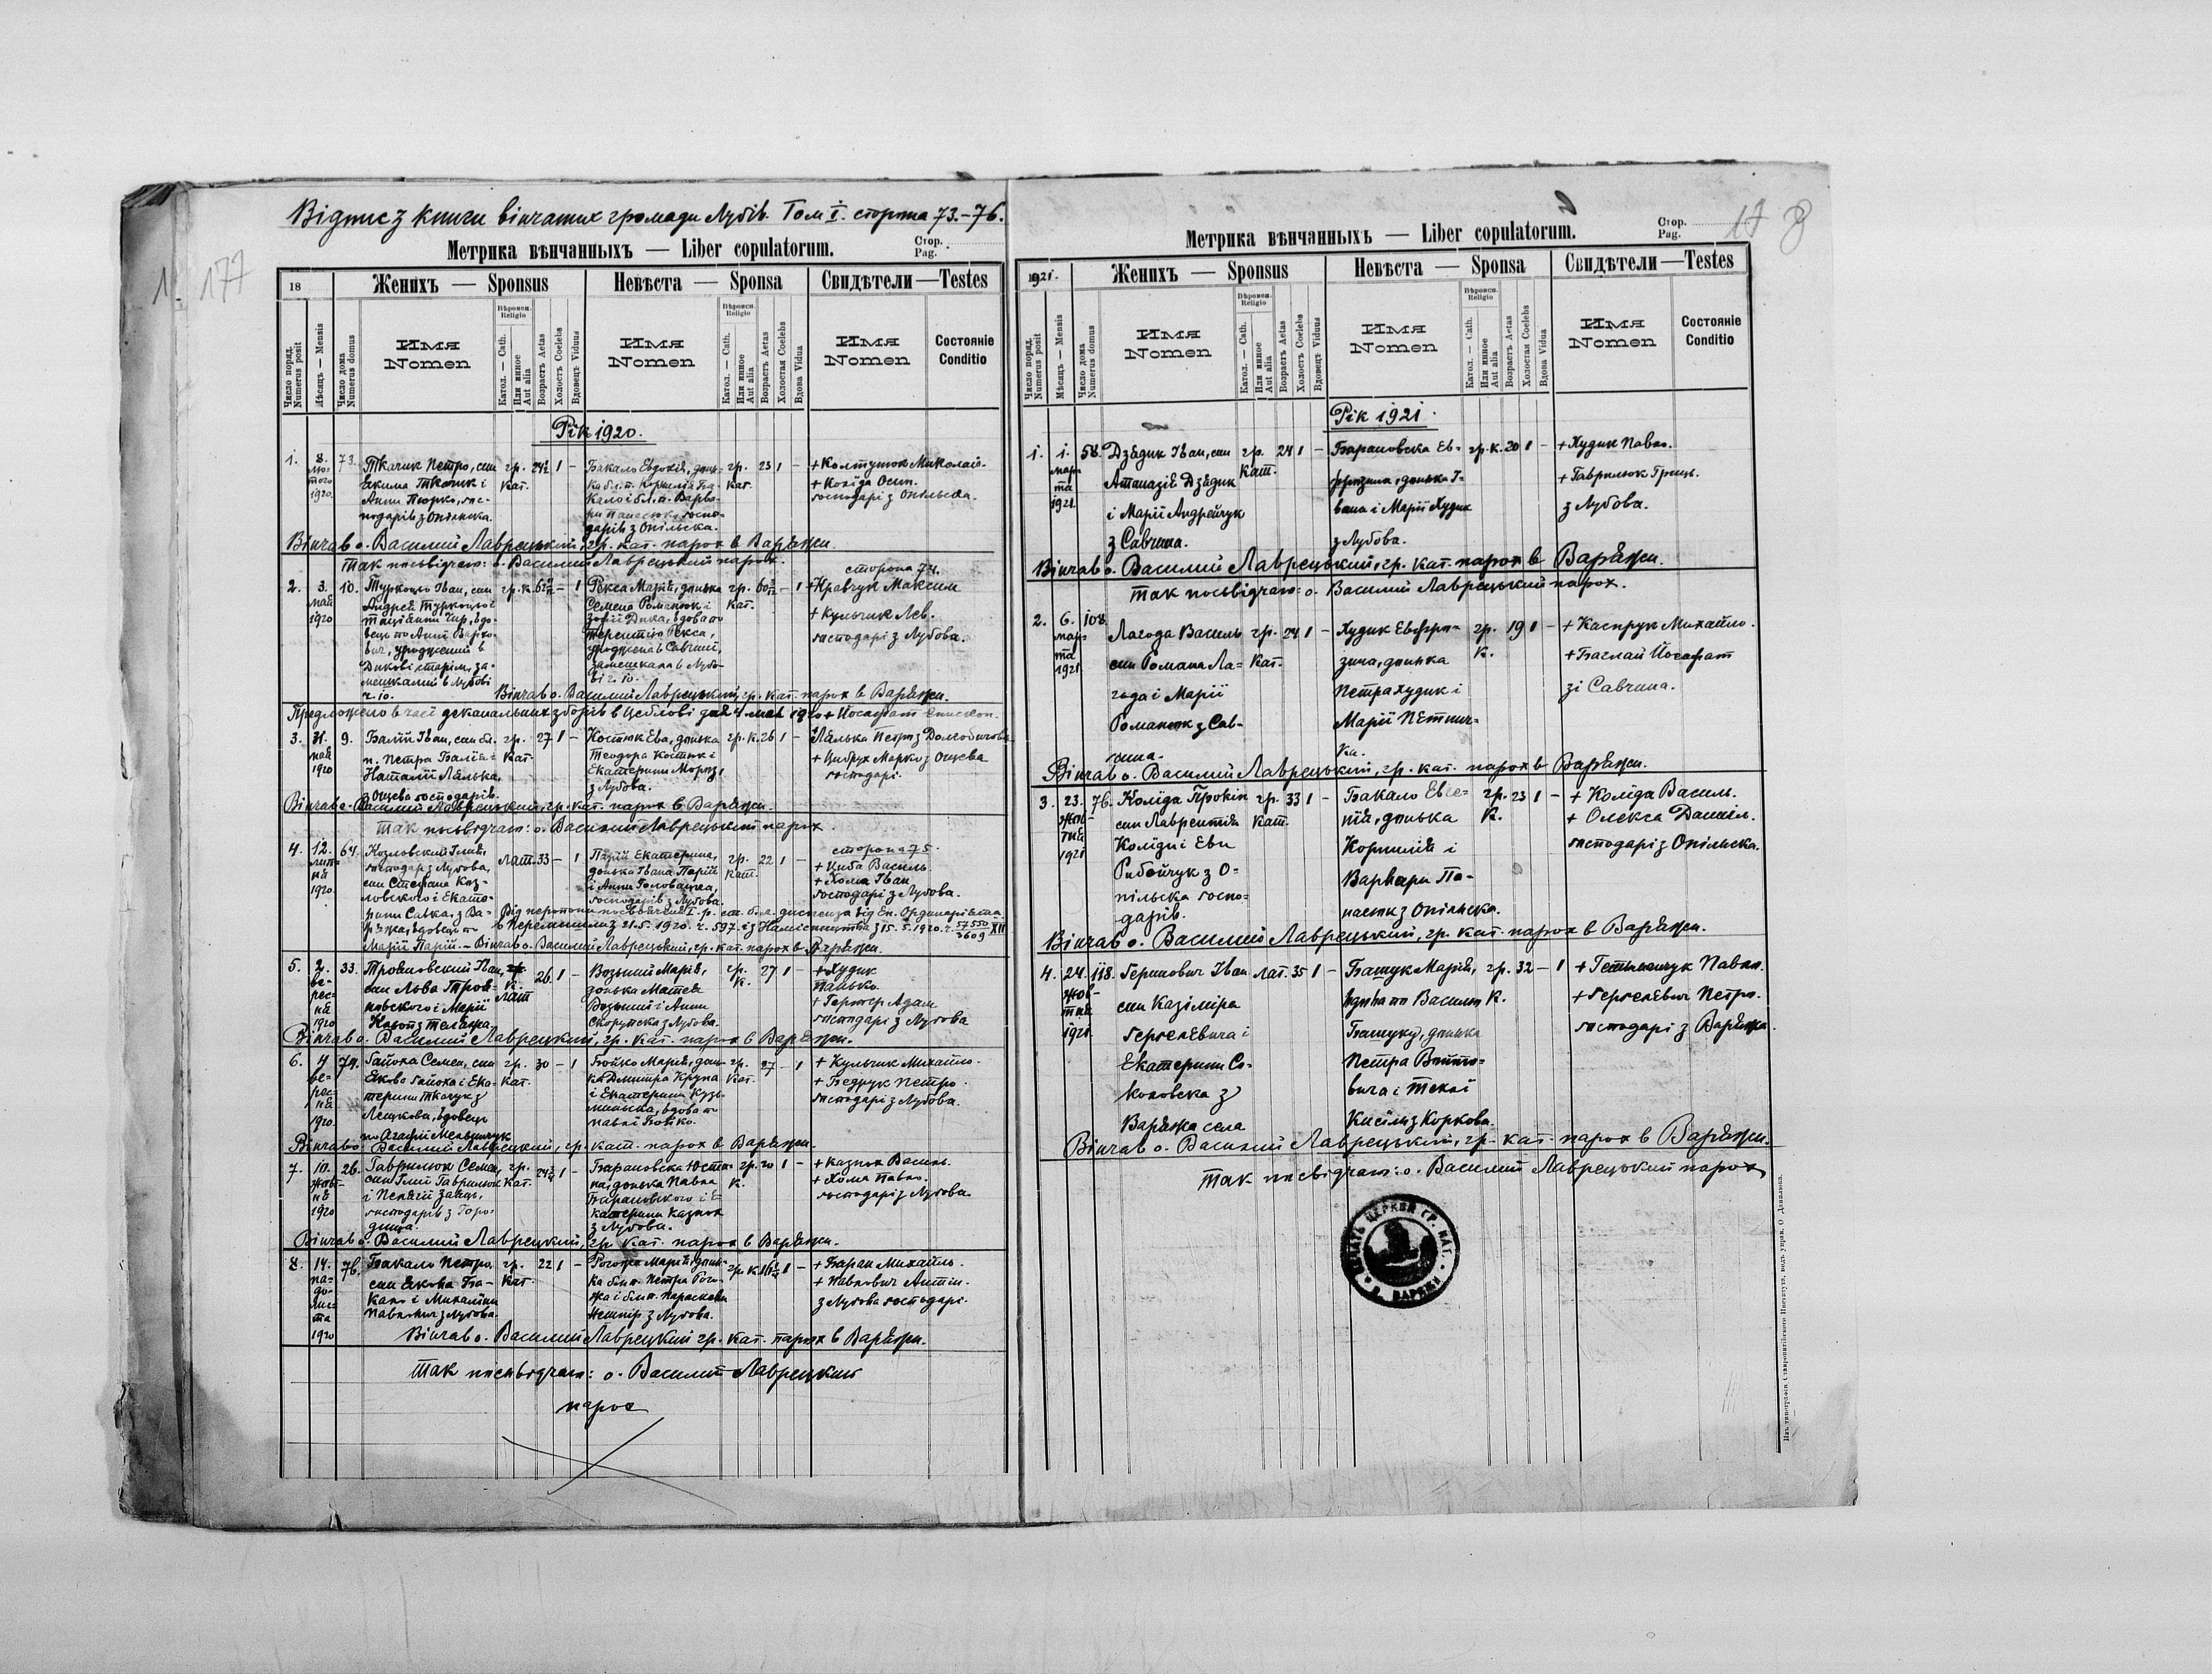 Відпис з книги вінчаних громади Лубів. Том I. сторона 73.-76.
Метрика вѣнчанныхъ — Liber copulatorum.
Стор. Pag.
177
18
Женихъ — Sponsus
Невѣста — Sponsa
Свидѣтели — Testes
Число поряд. Numerus posit
Мѣсяцъ — Mensis
Число дома Numerus domus
Имя Nomen
Вѣроисп. Religio
Катол. — Cath.
Или инное Aut alia
Возрастъ Aetas
Холостъ Coelebs
Вдовецъ Viduus
Имя Nomen
Вѣроисп. Religio
Катол. — Cath.
Или инное Aut alia
Возрастъ Aetas
Холостая Coelebs
Вдова Vidua
Имя Nomen
Состояніе Conditio
Рік 1920.
1. 8. лютого 1920 73.
Ткачик Петро, син
Якима Ткачик і
Анни Тюрко, гос-
подарів з Опільска.
гр. кат. 1 –
Бакало Евдокія, донь-
ка бл. п. Корнилія Ба-
кало і бл. п. Варва-
ри Панасюк, госпо-
дарів з Опільска.
гр. кат. 23 1 –
+ Колтунюк Миколай.
+ Коліда Осип.
господарі з Опільска.
Вінчав о. Василий Лаврецький, гр. кат. парох в Варяжи.
Так посвідчаю: о. Василий Лаврецький парох.
сторона 74.
2. 3. мая 1920 10.
Туркоцьо Іван, син
Андрея Туркоцьо і
Чир, вдо-
вець по Анні Варко-
вич, уроджений в
Дикові старім, за-
мешкалий в Лубові
ч. 10.
гр. к. – 1
Рекса Марія, донька
Семена Романюк і
Зофії Дика, вдова по
Терентию Рекса,
уроджена в Савчині,
замешкала в Лубо-
ві ч. 10.
гр. кат. – 1
+ Кравчук Максим
+ Кульчик Лев.
господарі з Лубова.
Вінчав о. Василий Лаврецький, гр. кат. парох в Варяжи.
Предложено в часї деканальних зборів в Цеблові дня 4 мая 1920 + Йосафат Єпископ.
3. 31. мая 1920 9.
Балій Іван, син бл.
п. Петра Балія і
Наталії Лялька,
з Ощева господарів.
гр. кат. 27 1 –
Костюк Ева, донька
Теодора Костюк і
Екатерини Мороз,
з Лубова.
гр. к. 26 1 –
Лялька Петро з Долгобичова
+ Цибрух Марко з Ощева
господарі.
Вінчав о. Василий Лаврецький, гр. кат. парох в Варяжи.
Так посвідчаю: о. Василий Лаврецький парох.
сторона 75.
4. 12. липня 1920 64.
Козловский Ілия,
господар з Лубова,
син Стефана Коз-
ловского і Екате-
рини Савка, з Ва-
ряжа, вдовець по
Марії Парій. –
лат. 33 – 1
Парій Екатерина,
донька Івана Парій
і Анни Головацка,
господарів з Лубова.
гр. кат. 22 1 –
+ Циба Василь
+ Хома Іван
господарі з Лубова.
Від перепони посвоячення I. р. ст. б. л. диспенза від Еп. Ординаріята
в Перемишли з 21.5.1920. ч. 597. і з Намісництва з 15.5.1920. ч. 57550/3609 XII
Вінчав о. Василий Лаврецький, гр. кат. парох в Варяжи.
5. 2. вересня 1920 33.
Трояновский Іван,
син Льва Троя-
новского і Марії
Кавон з Теляжа
к. лат 26 1 –
Возьний Марія,
донька Матея
Возьний і Анни
Скорупска з Лубова.
гр. к. 27 1 –
+ Худик Панько.
+ Гертнер Адам
господарі з Лубова
Вінчав о. Василий Лаврецкий, гр. кат. парох в Варяжи.
6. 4 вересня 1920. 74.
Гайоха Семен, син
Якова Гайоха і Ека-
терини Ткачук з
Лешкова, вдовець
по Агафії Мельничук
гр. кат. 30 – 1
Бойко Марія, донь-
ка Дмитра Крупа
і Екатерини Кузь-
миньска, вдова по
Павлі Бойко.
гр. кат. 27 – 1
+ Кульчик Михайло.
+ Бедрук Петро.
господарі з Лубова.
Вінчав о. Василий Лаврецький, гр. кат. парох в Варяжи.
7. 10. жовтня 1920 26.
Гаврилюк Семен,
син Ілиї Гаврилюк
і Пелагії Заяць,
господарів з Горо-
дища.
гр. кат. 1 –
Барановска Юсти-
на, донька Павла
Барановского і Е-
катерини Казнох
з Лубова.
гр. к. 20 1 –
+ Казнох Василь.
+ Хома Павло.
господарі з Лубова
Вінчав о. Василий Лаврецкий, гр. кат. парох в Варяжи.
8. 14. падолиста 1920 76.
Бакало Петро,
син Якова Ба-
кало і Михалини
Павлович з Лубова
гр. кат. 22 1 –
Рогожа Марія, донь-
ка бл. п. Петра Рого-
жа і бл. п. Параскеви
Нешпір з Лубова.
гр. к. 1 –
+ Баран Михайло.
+ Павлович Антін.
з Лубова господарі.
Вінчав о. Василий Лаврецкий гр. кат. парох в Варяжи.
Так посвідчаю: о. Василий Лаврецкий
парох
Метрика вѣнчанныхъ — Liber copulatorum.
Стор. Pag.
17 8
1921.
Женихъ — Sponsus
Невѣста — Sponsa
Свидѣтели — Testes
Число поряд. Numerus posit
Мѣсяцъ — Mensis
Число дома Numerus domus
Имя Nomen
Вѣроисп. Religio
Катол. — Cath.
Или инное Aut alia
Возрастъ Aetas
Холостъ Coelebs
Вдовецъ Viduus
Имя Nomen
Вѣроисп. Religio
Катол. — Cath.
Или инное Aut alia
Возрастъ Aetas
Холостая Coelebs
Вдова Vidua
Имя Nomen
Состояніе Conditio
Рік 1921.
1. 1. марта 1921 58.
Дзядик Іван, син
Атаназія Дзядик
і Марії Андрейчук
з Савчина.
гр. кат. 24 1 –
Барановска Ев-
фрозина, донька І-
вана і Марії Худик
з Лубова.
гр. к. 20 1 –
+ Худик Павло.
+ Гаврилюк Гриць.
з Лубова.
Вінчав о. Василий Лаврецький, гр. кат. парох в Варяжи.
Так посвідчаю: о. Василий Лаврецький парох.
2. 6. марта 1921 108
Лагода Василь
син Романа Ла-
года і Марії
Романюк з Сав-
чина.
гр. кат. 24 1 –
Худик Евфро-
зина, донька
Петра Худик і
Марії Петнич-
ка.
гр. к. 19 1 –
+ Каспрук Михайло.
+ Баглай Йосафат
зі Савчина.
Вінчав о. Василий Лаврецький, гр. кат. парох в Варяжи.
3. 23. жовтня 1921 76.
Коліда Прокіп
син Лаврентія
Коліди і Еви
Рибойчук з О-
пільска госпо-
дарів.
гр. кат. 33 1 –
Бакало Евге-
нія, донька
Корнилія і
Варвари Па-
насюк з Опільска.
гр. к. 23 1 –
+ Коліда Василь.
+ Олекса Даниїл.
господарі з Опільска.
Вінчав о. Василий Лаврецький, гр. кат. парох в Варяжи.
4. 24. жовтня 1921 118.
Іван
син Казіміра
і
Екатерини Со-
коловска з
Варяжа села
лат. 35 1 –
Бащук Марія,
вдова по Василю
Бащуку, донька
Петра Войто-
вича і Теклї
Кисїль з Коркова.
гр. к. 32 – 1
+ Павло.
+ Петро.
господарі з Варяжа.
Вінчав о. Василий Лаврецький, гр. кат. парох в Варяжи.
Так посвідчаю: о. Василий Лаврецький парох
ПЕЧАТЬ ЦЕРКВИ ГР. КАТ. В ВАРЯЖИ
Изъ типографіи Ставропигійского Института, подъ управ. О. Данилюка.